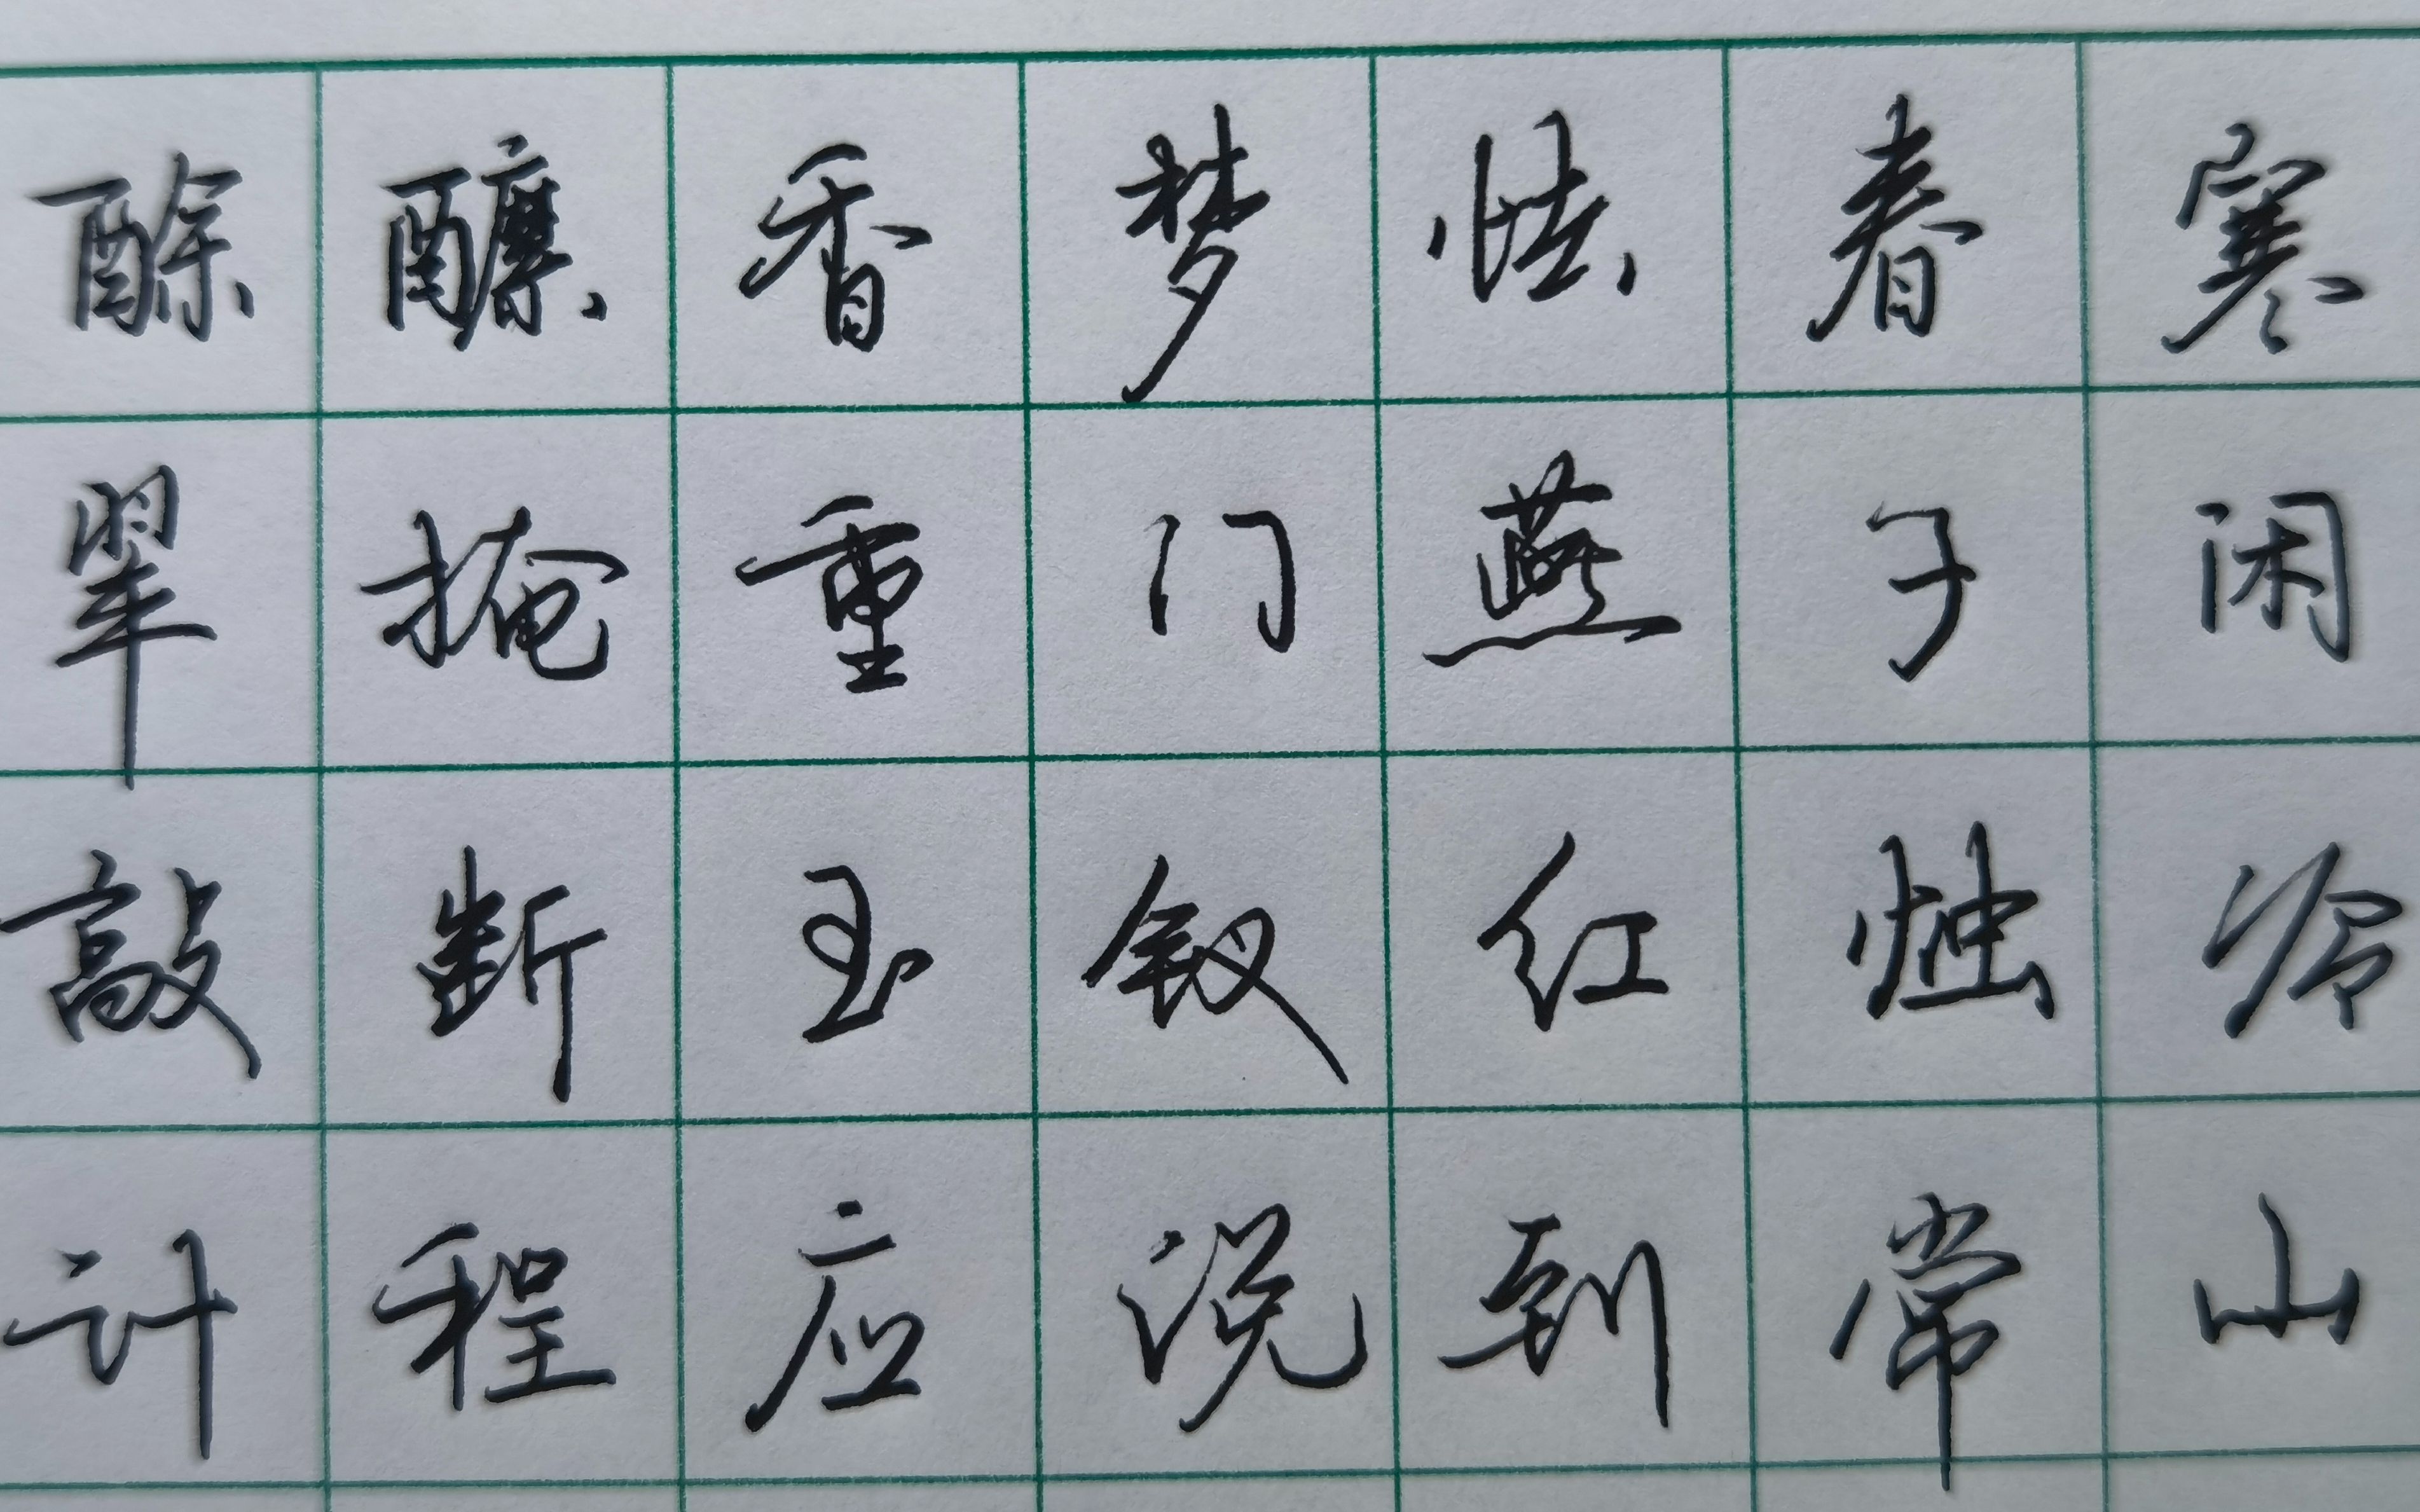 酴醿香梦怯春寒
翠掩重门燕子闲
敲断玉钗红烛冷
计程应说到常山